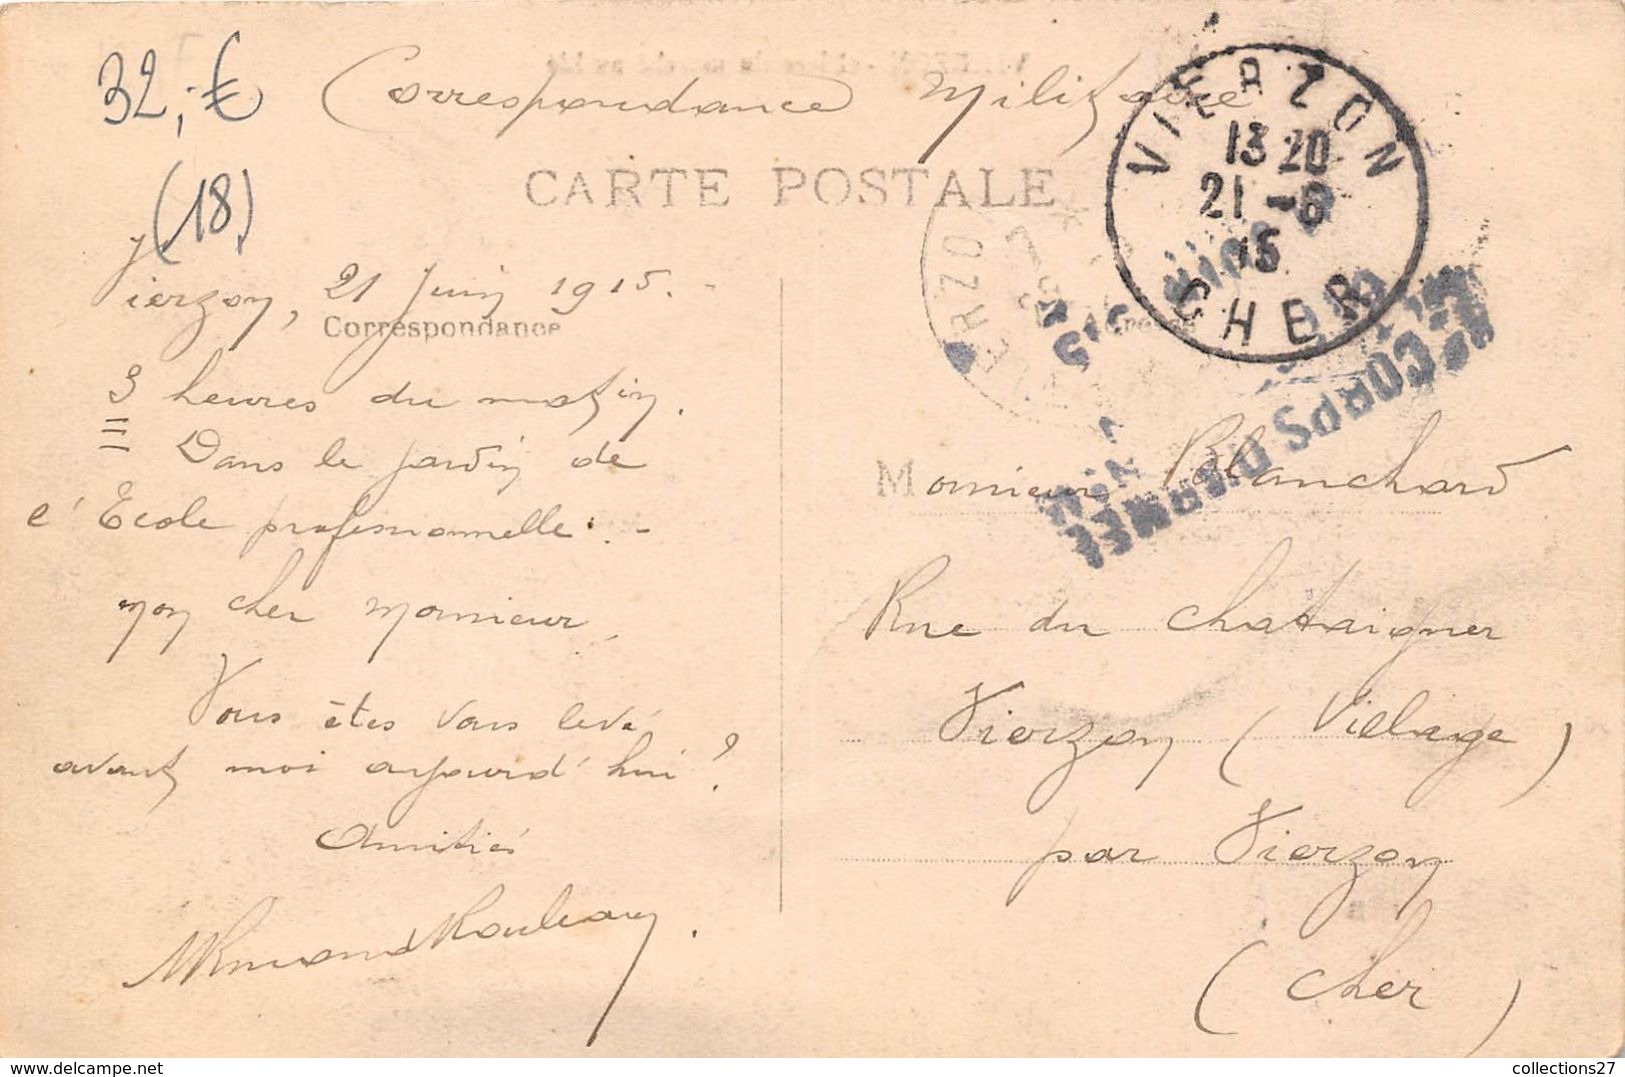 32,-€
(18)
Correspondance Militaire
CARTE POSTALE
VIERZON
13 20
21 -6
15
CHER
Vierzon, 21 Juin 1915.-
Correspondance
3 heures du matin.
Dans le jardin de
l'Ecole professionnelle.-
Mon cher Monsieur,
Vous êtes vous levé
avant moi aujourd'hui ?
Amitiés
CORPS D'ARMÉE
Monsieur Blanchard
Rue du Chataigner
Vierzon (Village)
par Vierzon
(Cher)
collections27